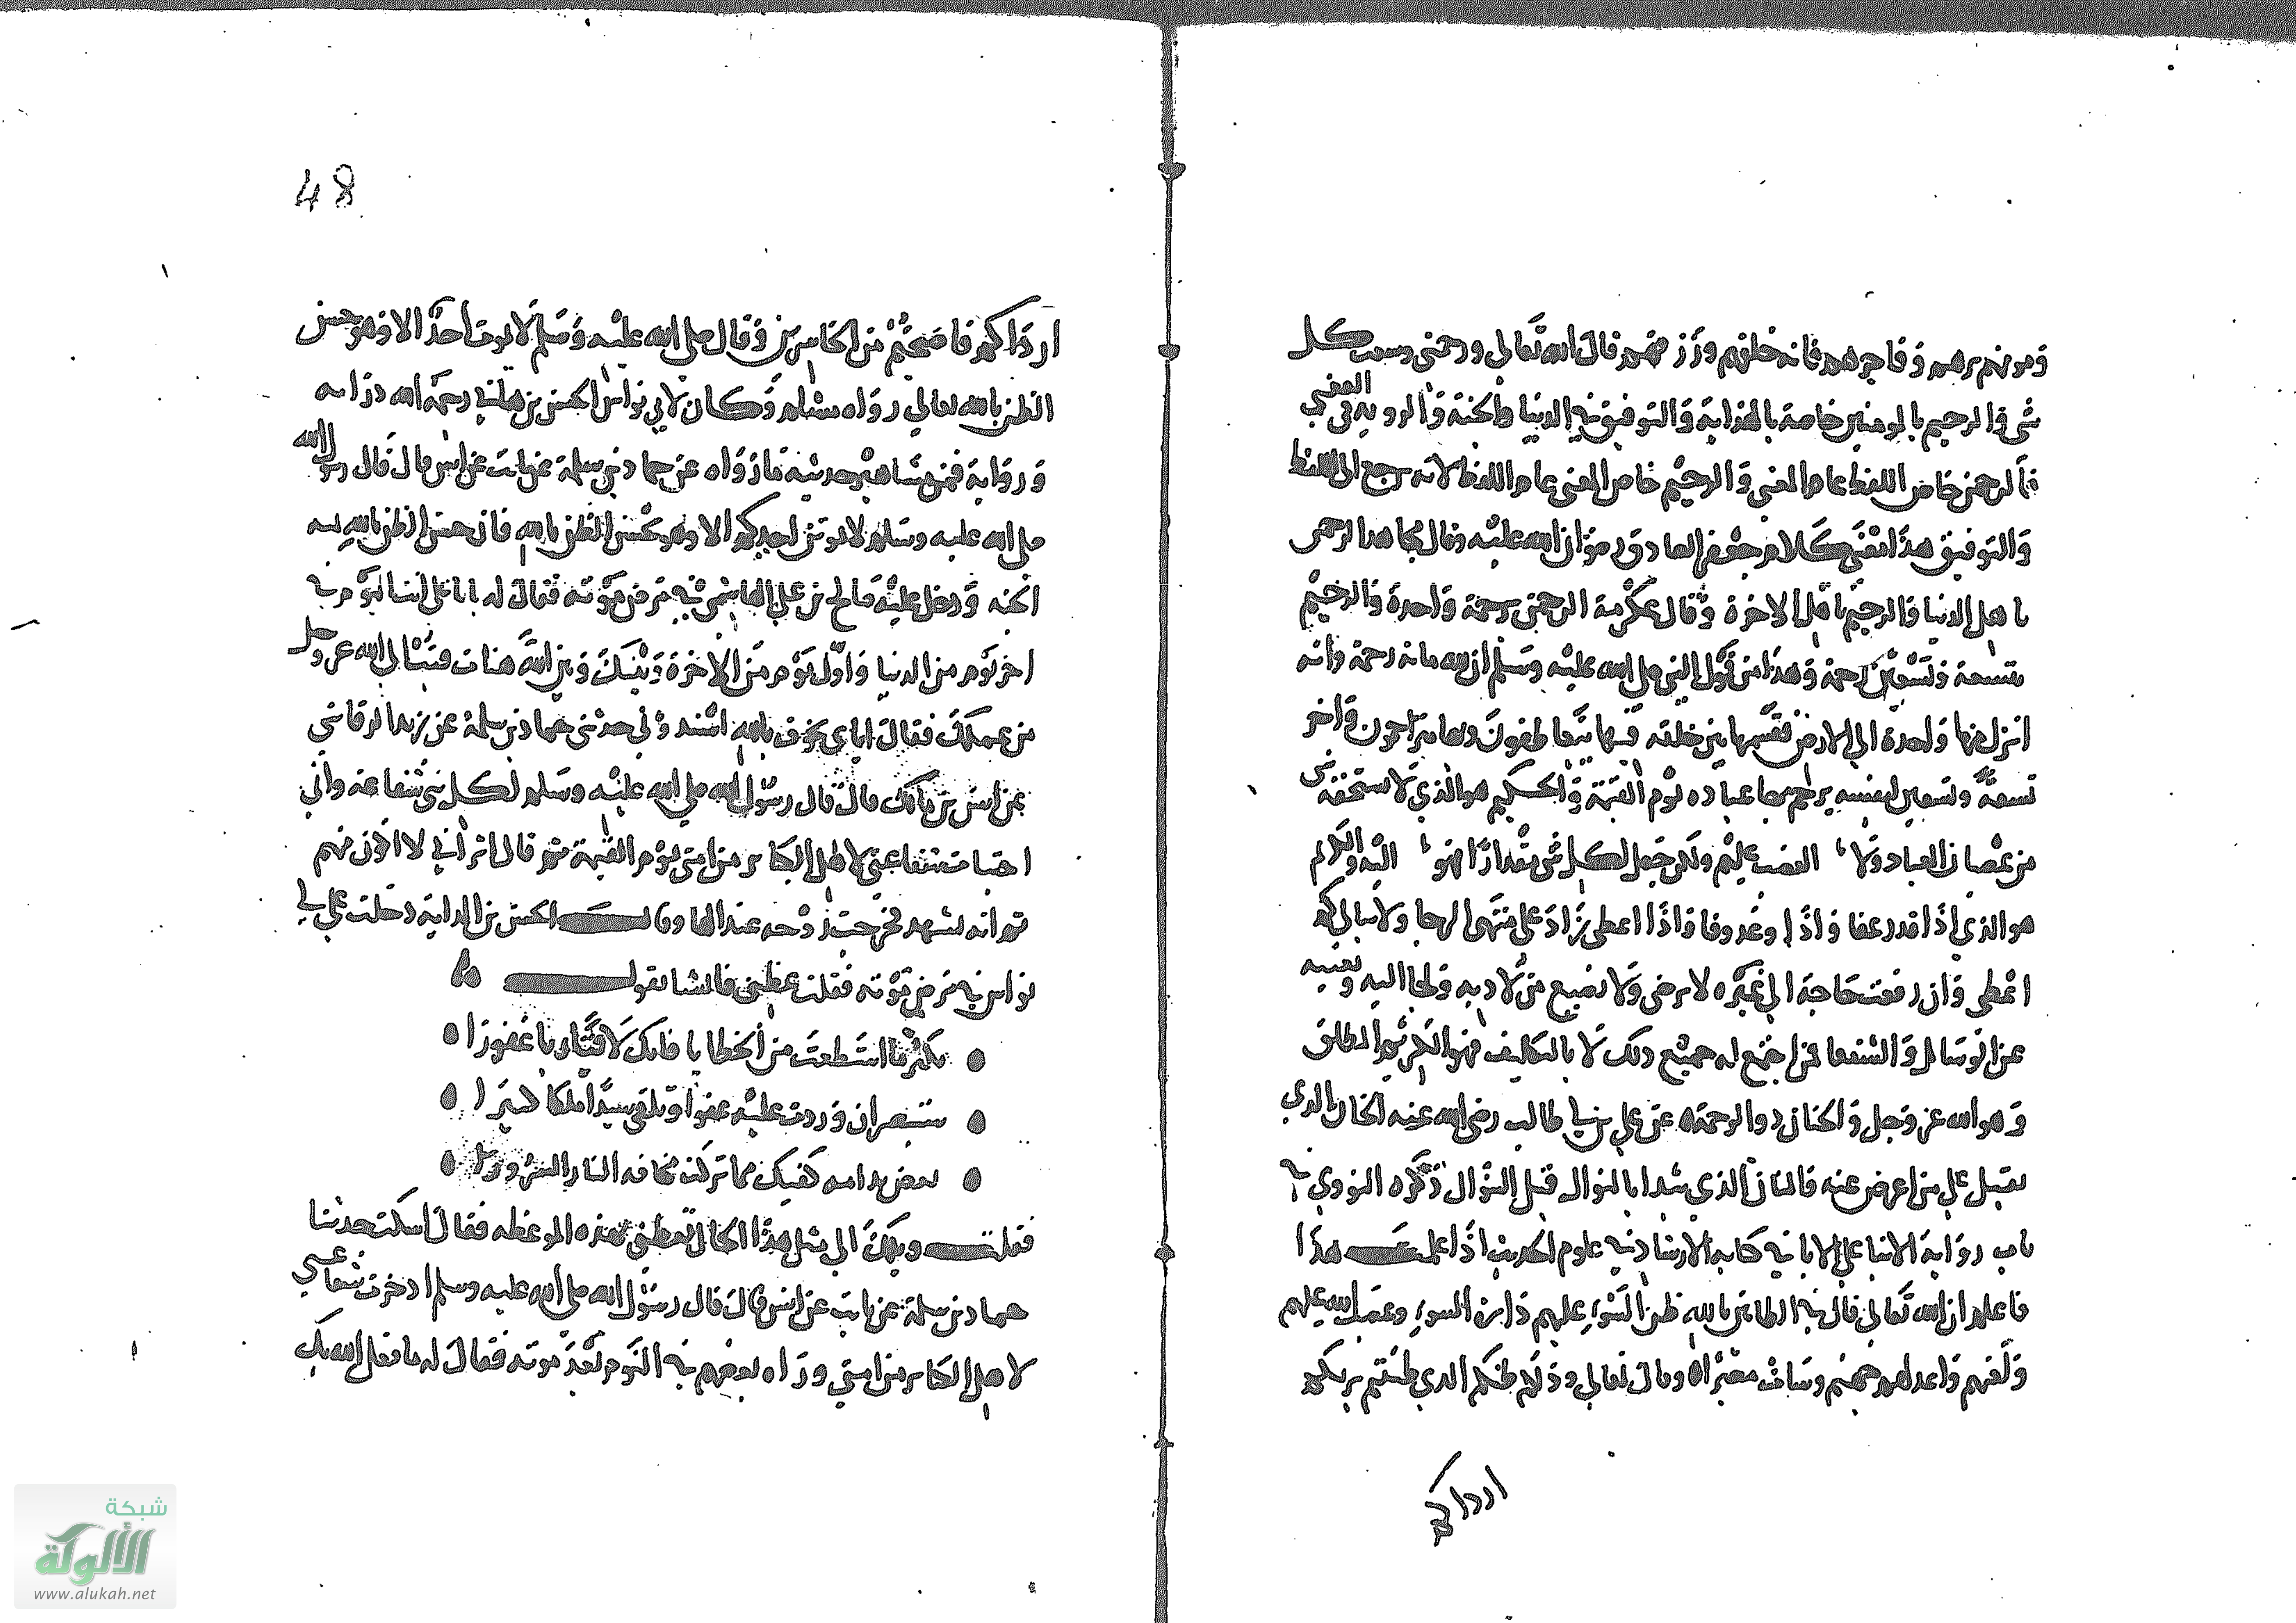 ومومنهم برهم وفاجرهم فانه خلقهم ورزقهم قال الله تعالى ورحمتي وسعت كل
شي والرحيم بالمومنين خاصة بالهداية والتوفيق في الدنيا والجنة والروية في العقبى
فالرحمن خاص اللفظ عام المعنى والرحيم خاص المعنى عام اللفظ لانه يرجع الى اللطف
والتوفيق هذا معنى كلام جعفر الصادق رضوان الله عليه وقال مجاهد الرحمن
باهل الدنيا والرحيم باهل الاخرة وقال عكرمة الرحمن برحمة واحدة والرحيم
بتسعة وتسعين رحمة وهذا من قول النبي صلى الله عليه وسلم ان لله مائة رحمة وانه
انزل منها واحدة الى الارض فقسمها بين خلقه فبها يتعاطفون وبها يتراحمون واخر
تسعة وتسعين لنفسه يرحم بها عباده يوم القيمة والحكيم هو الذي لا يستخفه شي
من عصيان العباد ولا الغضب عليهم ولكن جعل لكل شي مقدارا فهو اليه والكريم
هو الذي اذا قدر عفا واذا وعد وفا واذا اعطى زاد على منتهى الرجا ولا يبالي كم
اعطى وان رفعت حاجة الى غيره لا يرضى ولا يضيع من لاذ به ولجا اليه ويغنيه
عن الوسائل والشفعا فمن اجتمع له جميع ذلك لا بالتكليف فهو الكريم المطلق
وهو الله عز وجل والحنان ذو الرحمة عن علي بن ابي طالب رضي الله عنه الحنان الذي
يقبل على من اعرض عنه والمنان الذي يبدا بالنوال قبل السوال ذكره النووي في
باب رواية الابنا عن الابا في كتابه الارشاد في علوم الحديث اذا علمت هذا
فاعلم ان الله تعالى قال في الظانين بالله ظن السوء عليهم دايرة السوء وغضب الله عليهم
ولعنهم واعد لهم جهنم وساءت مصيرا وقال تعالى وذلكم ظنكم الذي ظننتم بربكم
ارداكم
48
ارداكم فاصبحتم من الخاسرين وقال صلى الله عليه وسلم لا يموتن احد الا وهو يحسن
الظن بالله تعالى رواه مسلم وكان لابي نواس الحسن بن هاني رحمه الله دراية
ورواية فمن مشاهير حديثه ما رواه عن حماد بن سلمة عن ثابت عن انس قال قال رسول الله
صلى الله عليه وسلم لا يموتن احدكم الا وهو يحسن الظن بالله فان حسن الظن بالله ثمن
الجنه ودخل عليه صالح بن علي الهاشمي في مرض موته فقال له يابا علي انت اليوم في
اخر يوم من الدنيا واول يوم من الاخرة وبينك وبين الله هنات فتب الى الله عز وجل
من عملك فقال اياي يخوف بالله اسندوني حدثني حماد بن سلمة عن يزيد الرقاشي
عن انس بن مالك قال قال رسول الله صلى الله عليه وسلم لكل نبي شفاعة واني
اختبات شفاعتي لاهل الكباير من امتي يوم القيمة ثم قال اتراني لا اكون منهم
ثم انه تشهد فخرجت روحه عندها وقال الحسن بن الداية دخلت على ابي
نواس في مرض موته فقلت عظني فانشا يقول
تكثر ما استطعت من الخطايا فانك لاقيا ربا غفورا
ستبصر ان وردت عليه عفوا وتلقى سيدا ملكا كبيرا
تعض ندامة كفيك مما تركت مخافة النار السرورا
فقلت ويلك الى مثل هذا الحال تعظني بهذه الموعظه فقال اسكت حدثنا
حماد بن سلمة عن ثابت عن انس قال قال رسول الله صلى الله عليه وسلم ادخرت شفاعتي
لاهل الكباير من امتي وراه بعضهم في النوم بعد موته فقال له ما فعل الله بك
شبكة
الألوكة
www.alukah.net